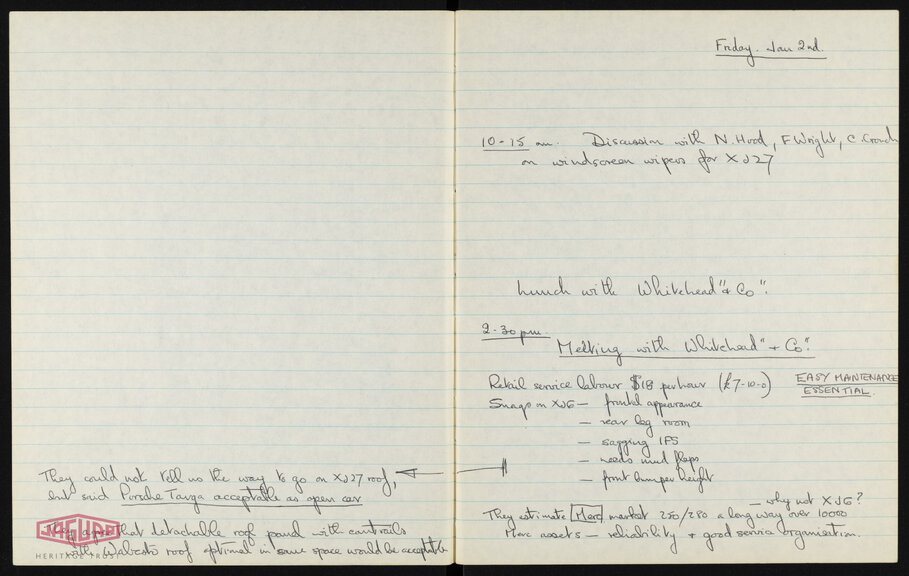 They could not tell us the way to go on XJ27 roof,
but said Porsche Targa acceptable as open car
They agree that detachable roof panel with cantrails
with Webasto roof optional in same space would be acceptable
JAGUAR
HERITAGE TRUST
Friday. Jan 2nd.
10-15 am. Discussion with N. Hood, F Wright, C. Crouch
on windscreen wipers for XJ27
Lunch with Whitehead "& Co".
2-30 pm.
Meeting with Whitehead "& Co".
Retail service labour $18 per hour (£7-10-0) EASY MAINTENANCE
ESSENTIAL.
Snags on XJ6 — frontal appearance
— rear leg room
— sagging IFS
— needs mud flaps
— front bumper height
They estimate Merc market 250/280 a long way over 10000 — why not XJ6?
Merc assets — reliability & good service organisation.